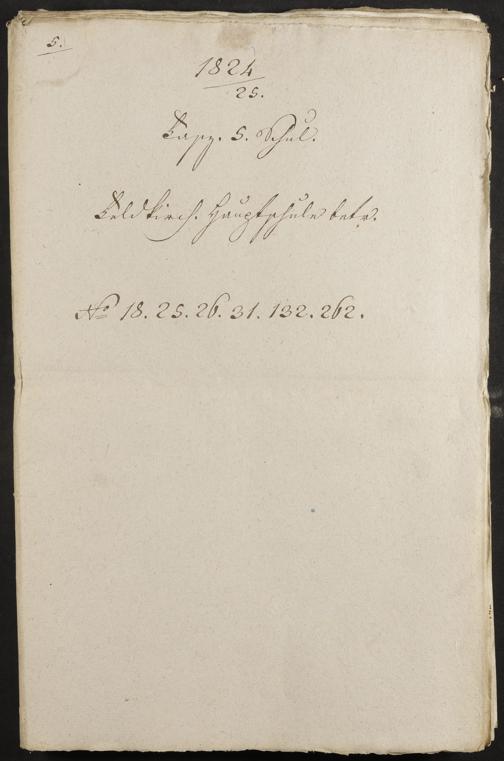 5.
1824
25.
Fasz. 5. Schul.
Feldkirch. Hauptschule betr.
No 18. 25. 26. 31. 132. 262.